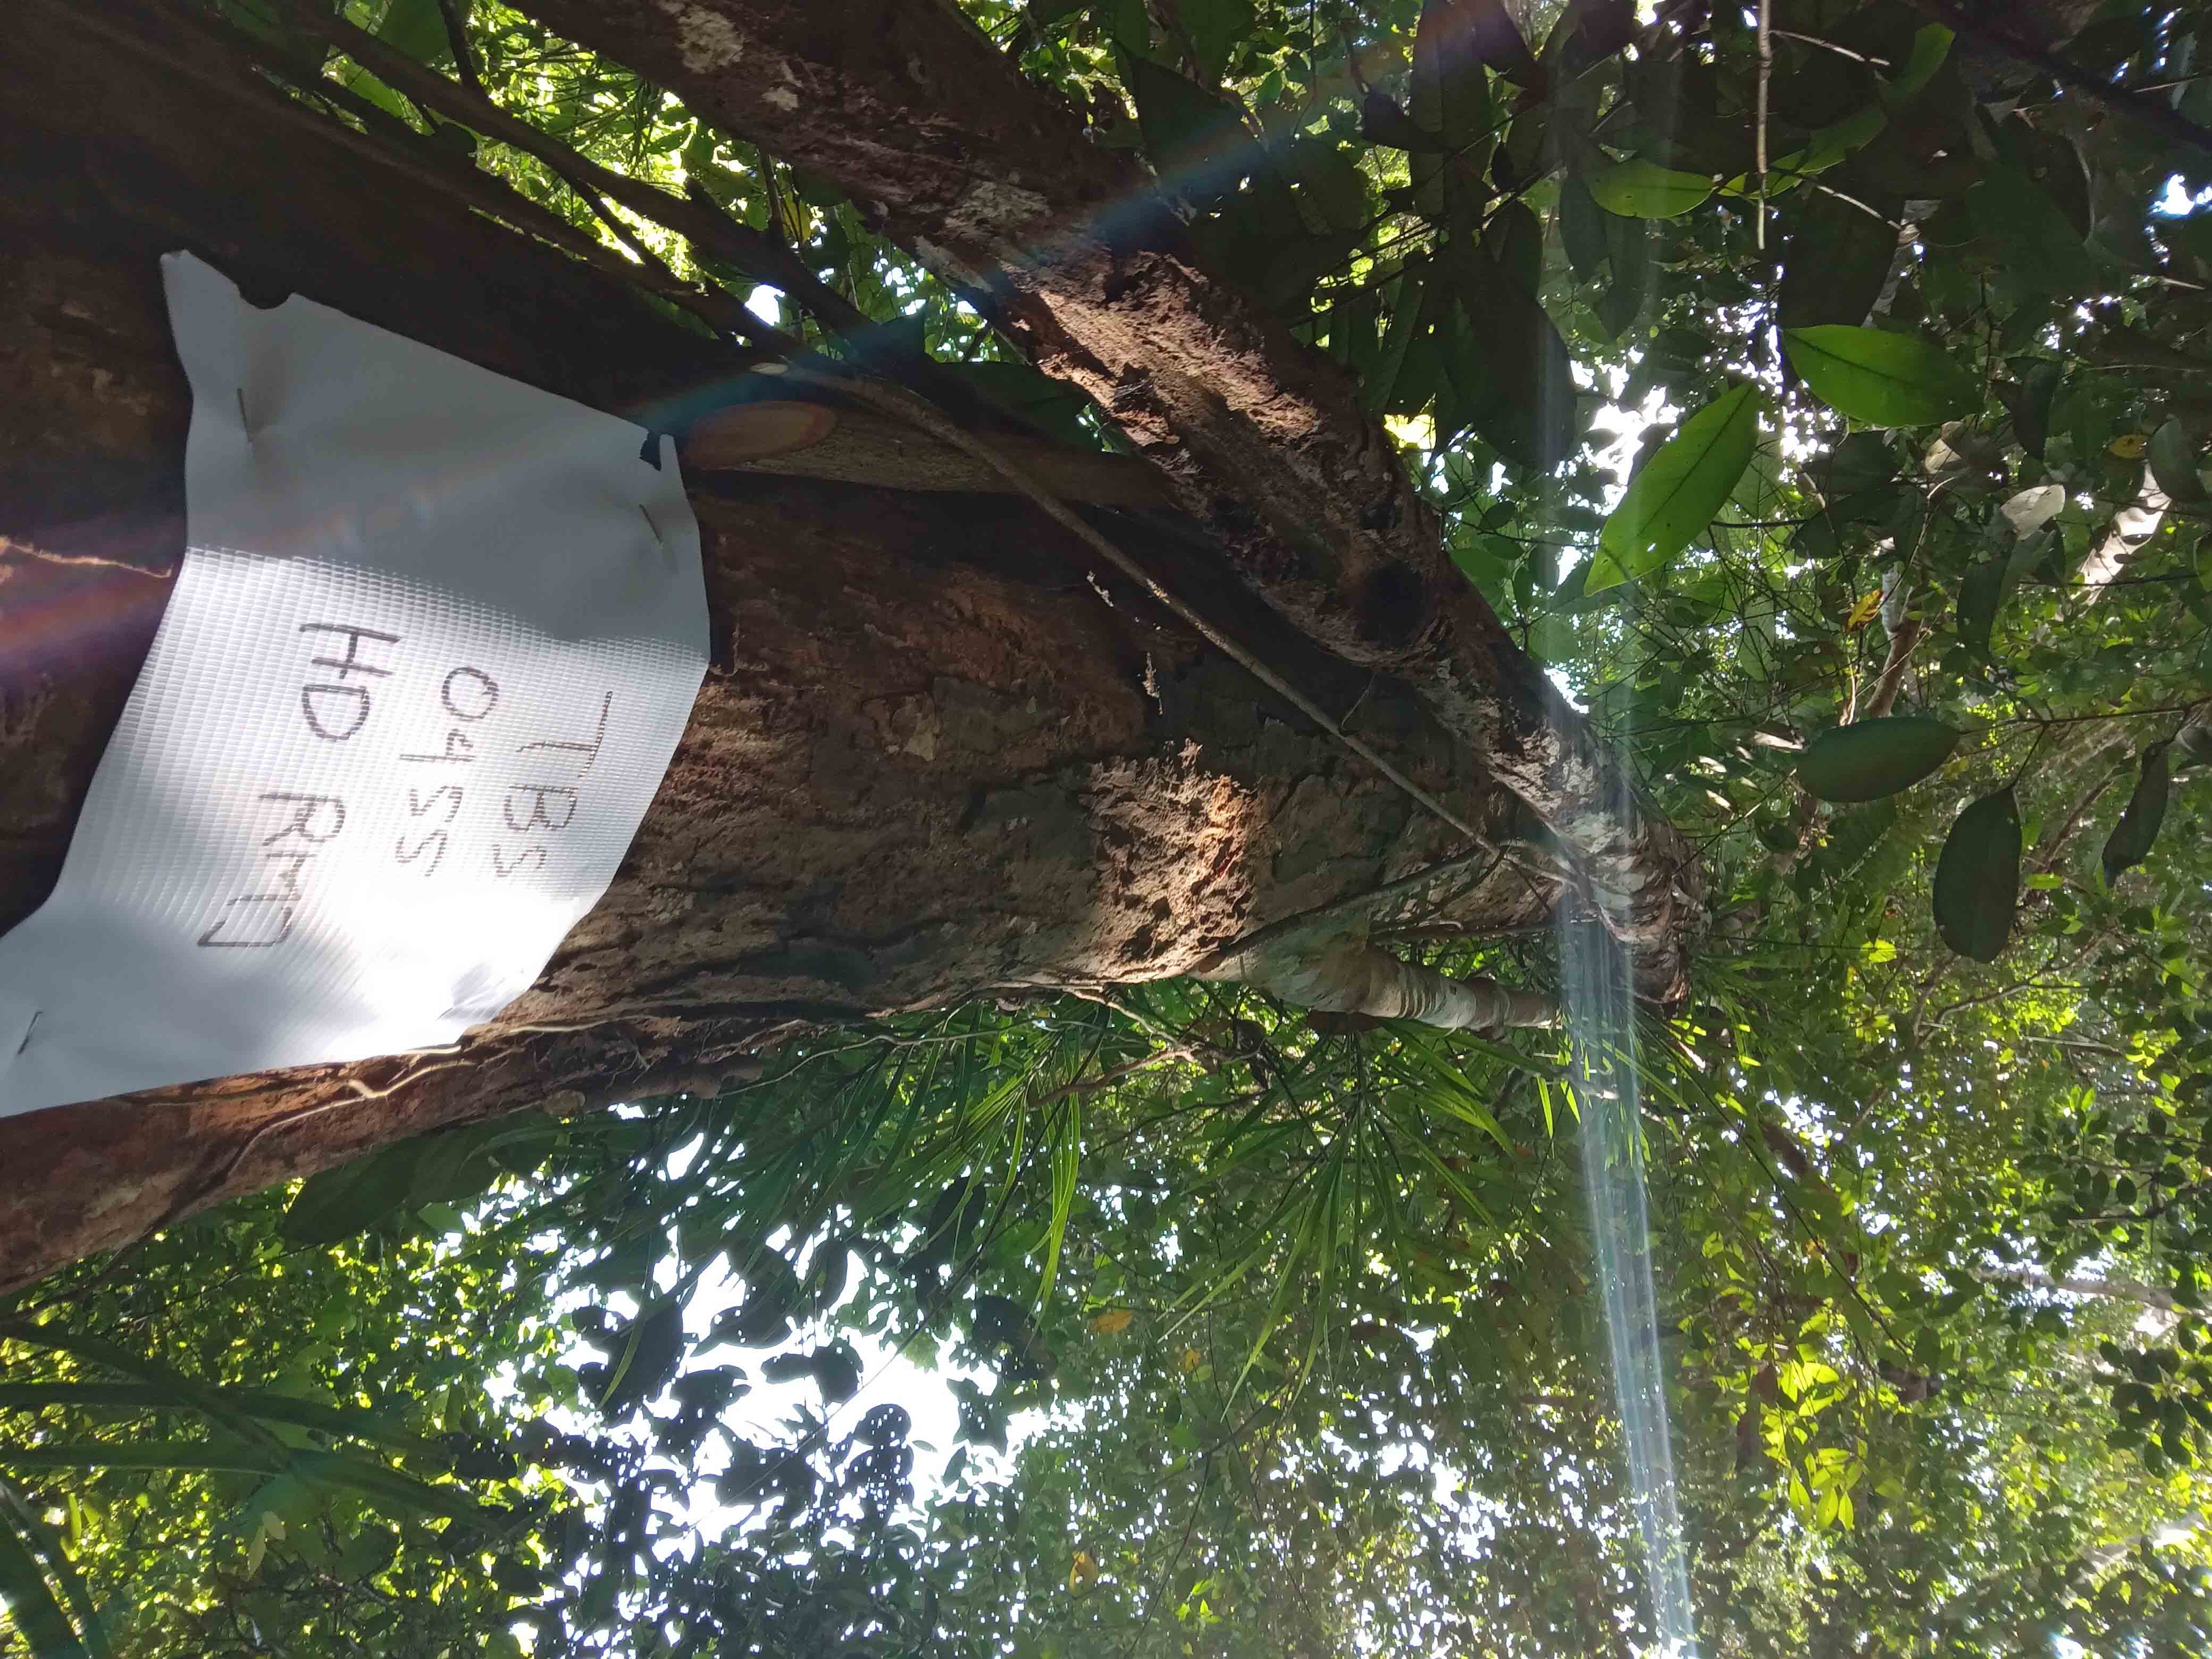 TBS
0955
HD RMD